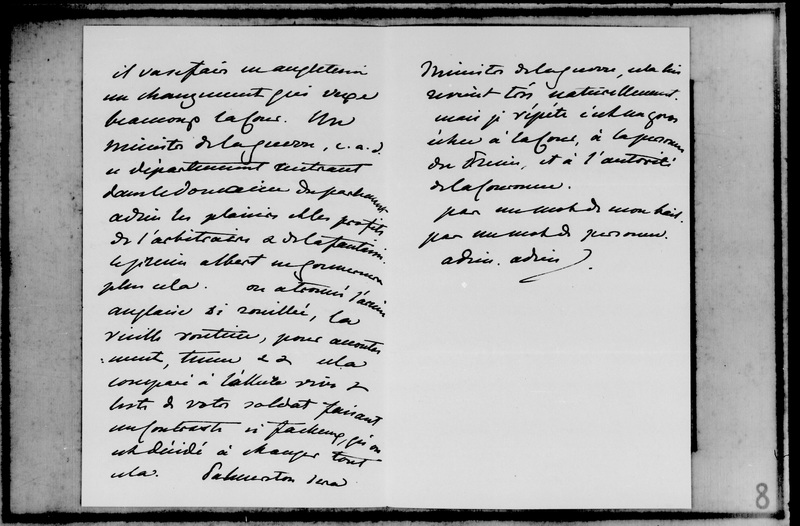 il va se faire en angleterre
un changement qui vexe
beaucoup la Cour. Un
Ministre de la guerre, c.a.d.
un département rentrant
dans le domaine du parlement
adieu les plaisirs et les profits
de l'arbitraire & de la fantaisie.
le prince albert ne gouvernera
plus cela. on a trouvé l'armée
anglaise si rouillée, la
vieille routine, pour
tenue & & cela
comparé à l'allure vive &
leste de votre soldat faisant
un contraste si facheux, qu'on
est décidé à changer tout
cela. Palmerston sera
Ministre de la guerre, cela lui
revient très naturellement.
mais je répète c'est un gros
échec à la Cour, à la personne
du Prince, et à l'autorité
de la Couronne.
pas un mot de mon
pas un mot de personne.
adieu. adieu.
8